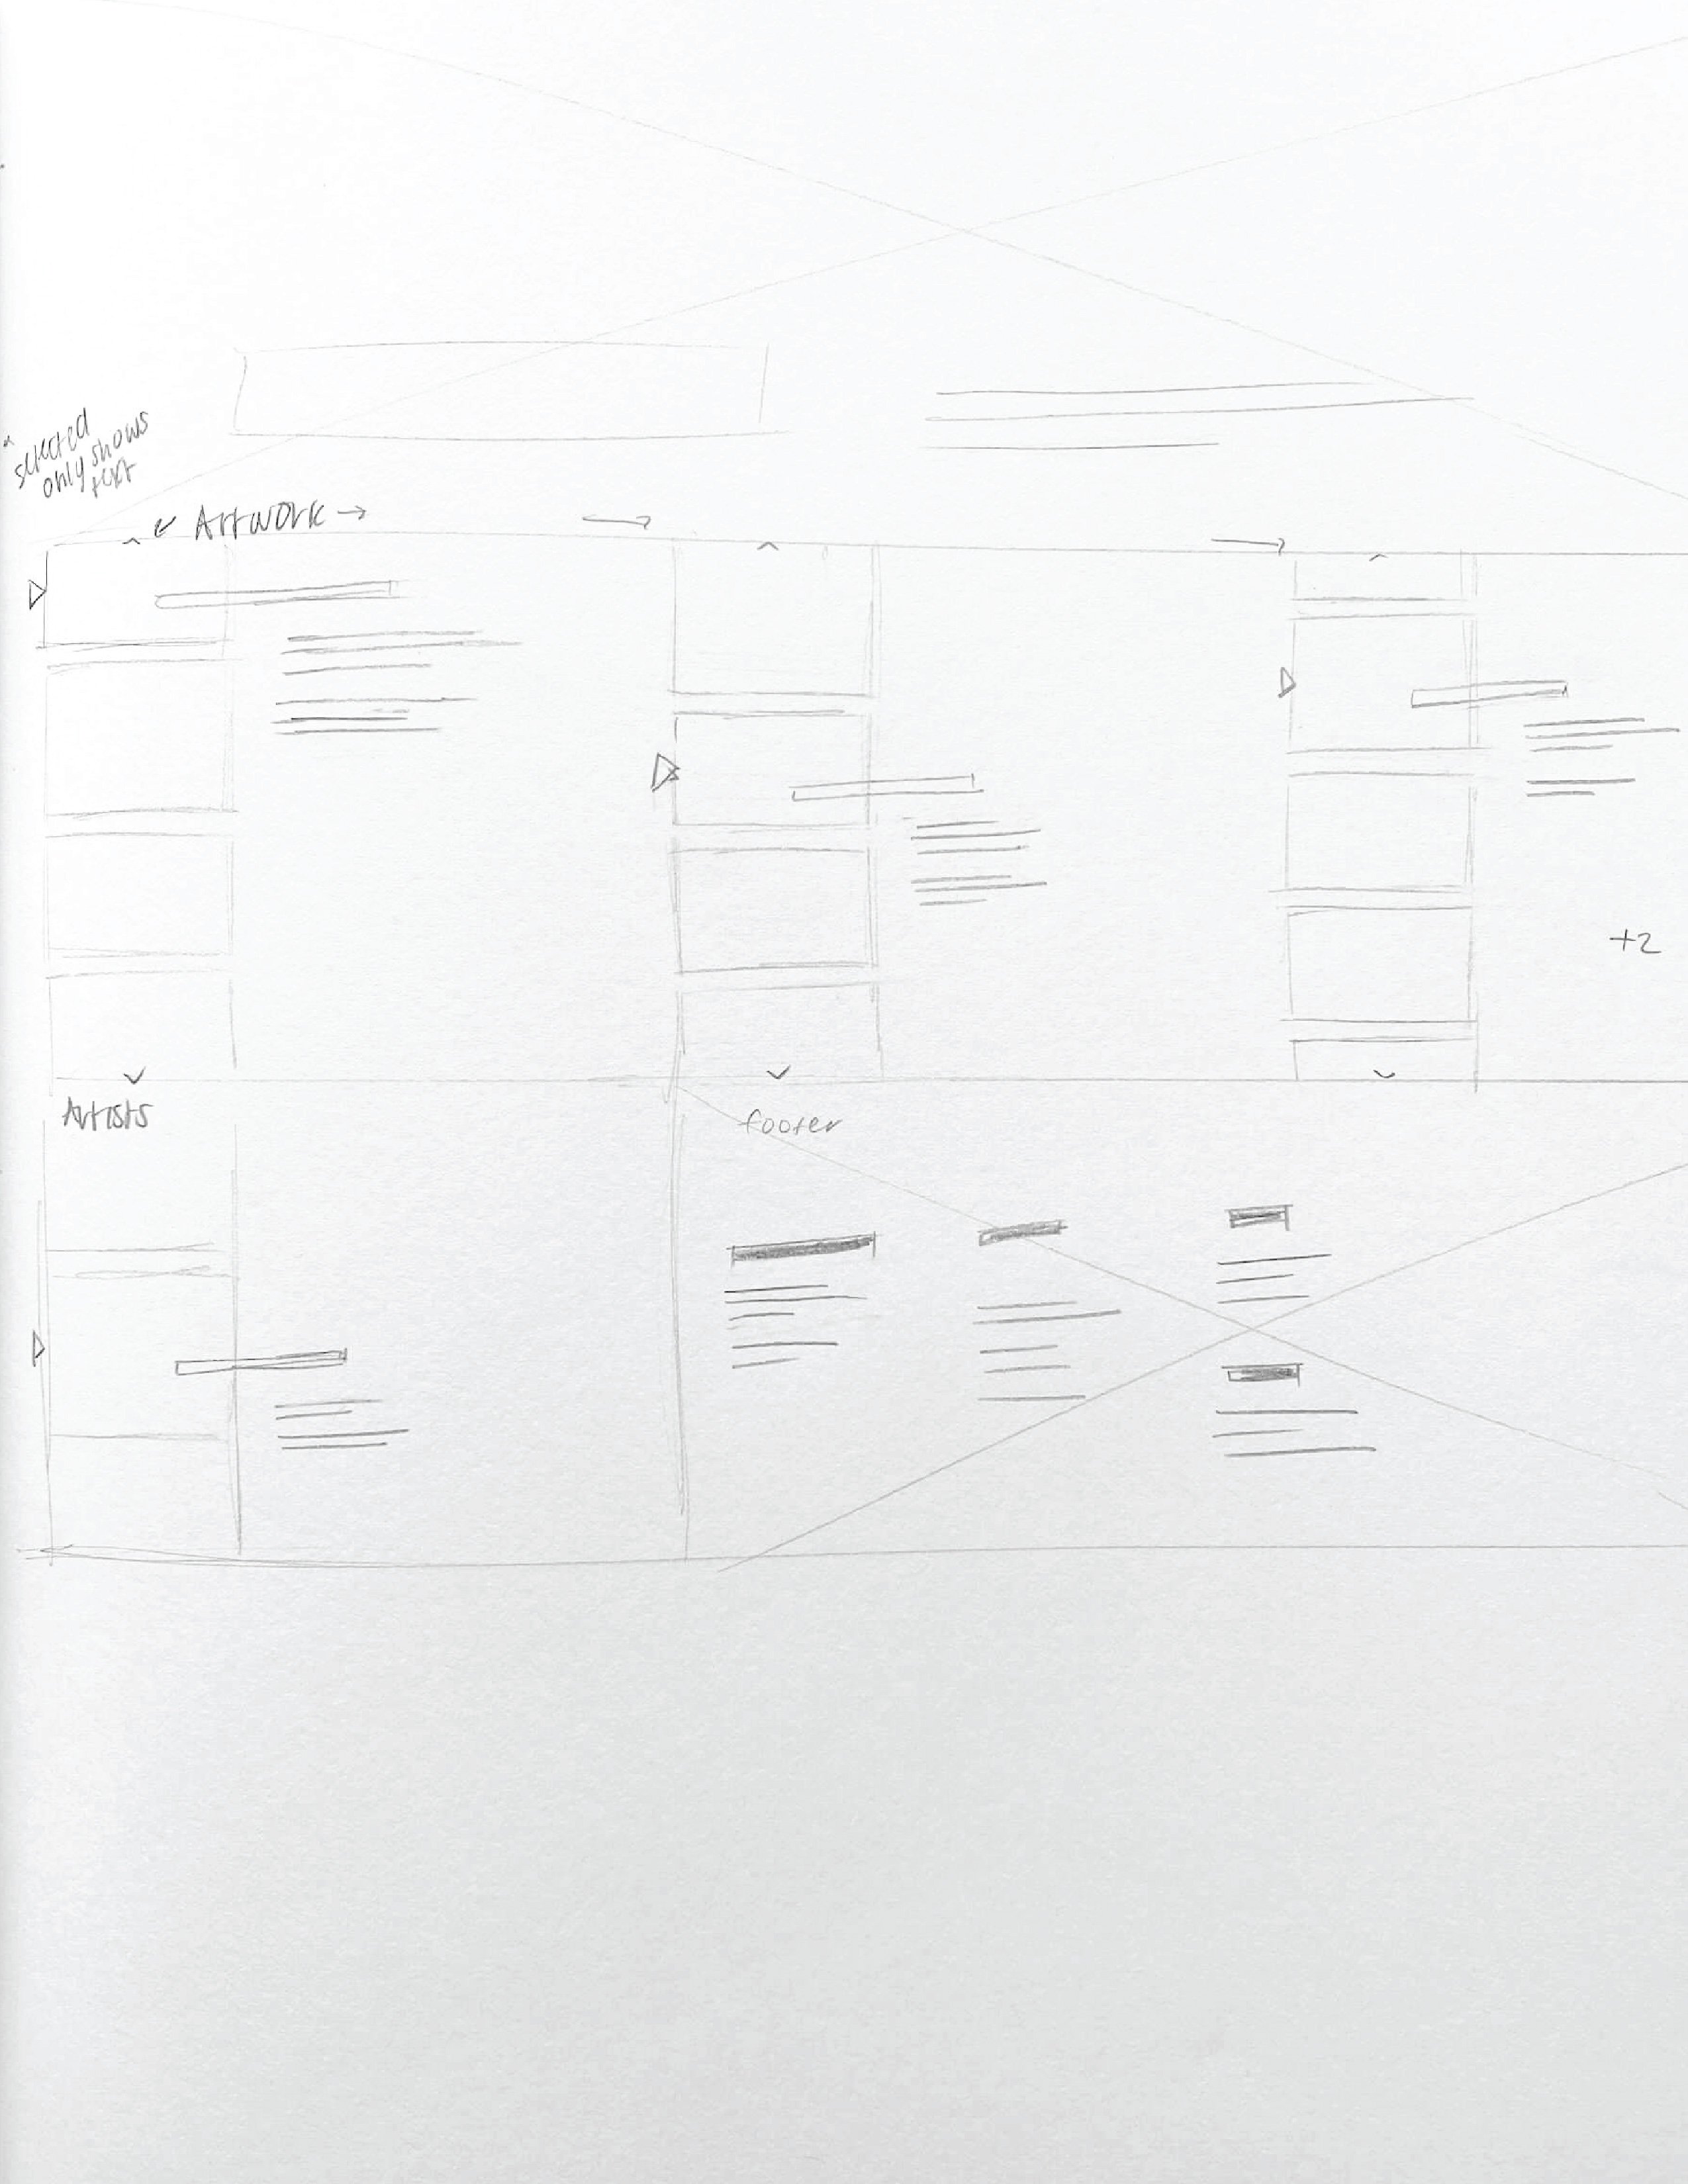 * selected
only shows
text
← Artwork →
+2
Artists
footer